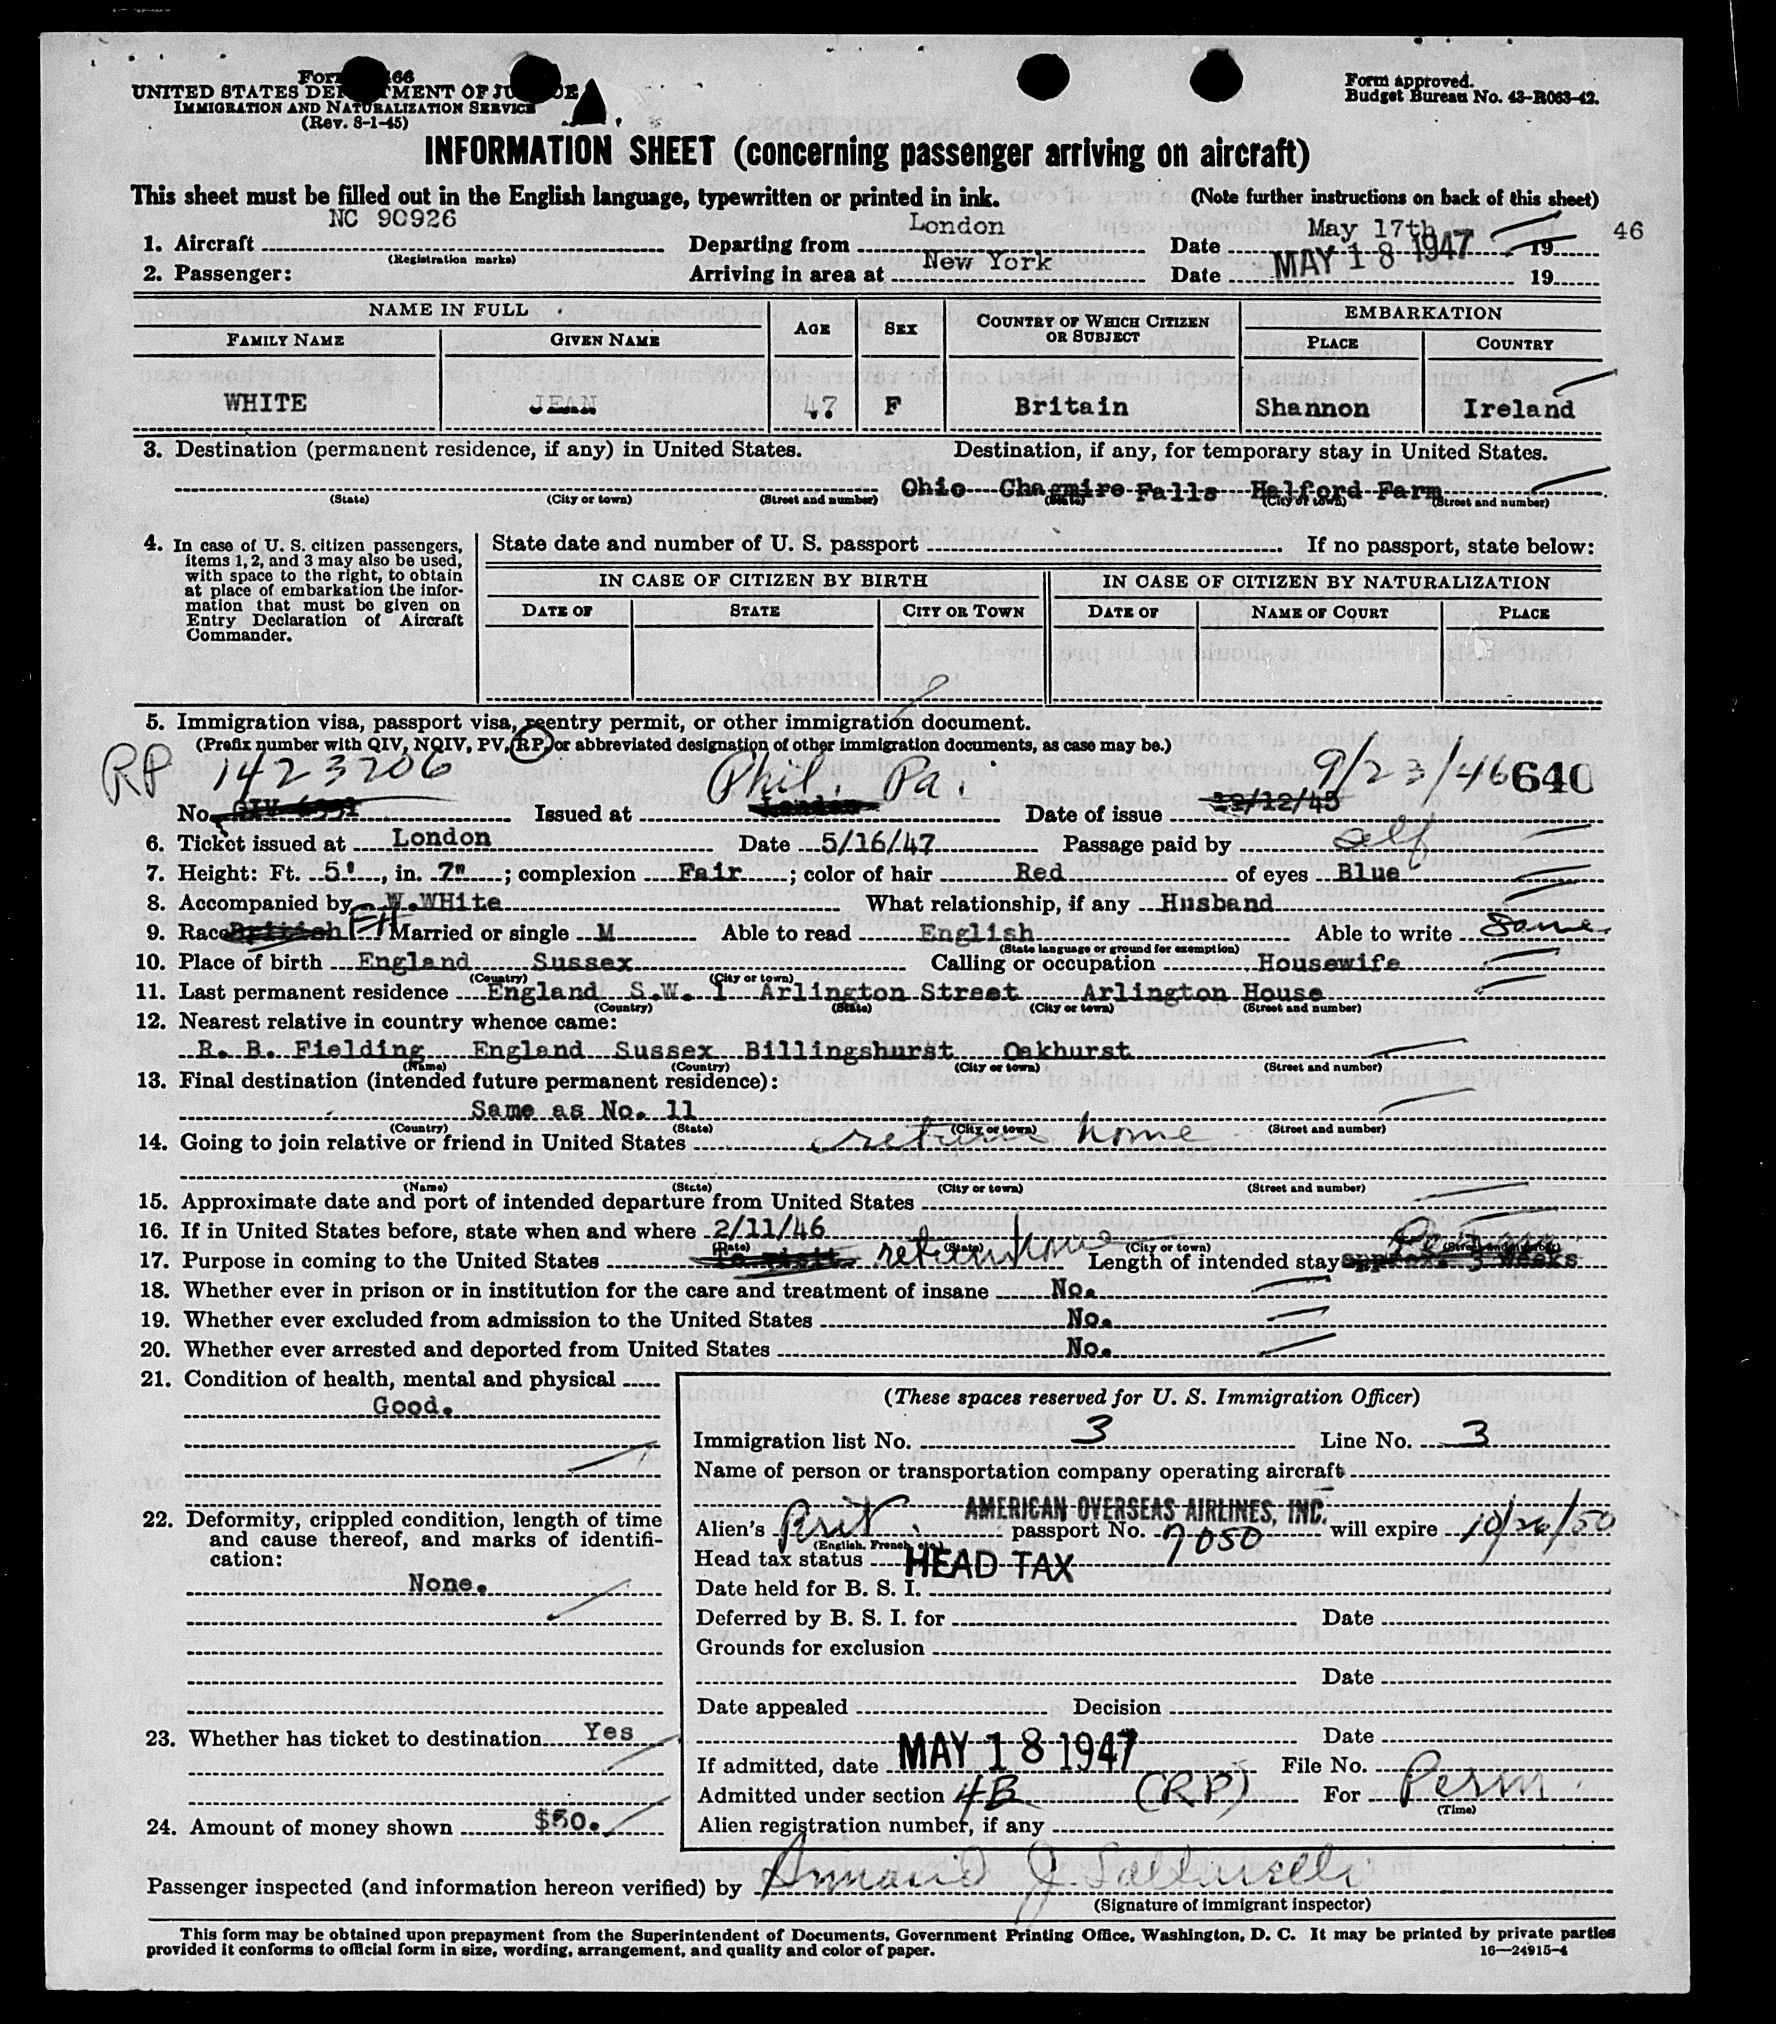 Form 466
UNITED STATES DEPARTMENT OF JUSTICE
IMMIGRATION AND NATURALIZATION SERVICE
(Rev. 8-1-45)
Form approved.
Budget Bureau No. 43-R063-42.
INFORMATION SHEET (concerning passenger arriving on aircraft)
This sheet must be filled out in the English language, typewritten or printed in ink. (Note further instructions on back of this sheet)
1. Aircraft NC 90926 Departing from London Date May 17th 19 46
(Registration marks)
2. Passenger: Arriving in area at New York Date MAY 18 1947 19
NAME IN FULL AGE SEX COUNTRY OF WHICH CITIZEN OR SUBJECT EMBARKATION
FAMILY NAME GIVEN NAME PLACE COUNTRY
WHITE JEAN 47 F Britain Shannon Ireland
3. Destination (permanent residence, if any) in United States. Destination, if any, for temporary stay in United States.
Ohio Chagmire Falls Halford Farm
(State) (City or town) (Street and number) (State) (City or town) (Street and number)
4. In case of U. S. citizen passengers, items 1, 2, and 3 may also be used, with space to the right, to obtain at place of embarkation the information that must be given on Entry Declaration of Aircraft Commander.
State date and number of U. S. passport If no passport, state below:
IN CASE OF CITIZEN BY BIRTH IN CASE OF CITIZEN BY NATURALIZATION
DATE OF STATE CITY OR TOWN DATE OF NAME OF COURT PLACE
5. Immigration visa, passport visa, reentry permit, or other immigration document.
(Prefix number with QIV, NQIV, PV, RP, or abbreviated designation of other immigration documents, as case may be.)
RP 1423206 Phil. Pa. 9/23/46 640
No. QIV Issued at London Date of issue 12/12/45
6. Ticket issued at London Date 5/16/47 Passage paid by self
7. Height: Ft. 5', in. 7"; complexion Fair; color of hair Red of eyes Blue
8. Accompanied by W.WHite What relationship, if any Husband
9. Race British Married or single M Able to read English Able to write Same
(State language or ground for exemption)
10. Place of birth England Sussex Calling or occupation Housewife
(Country) (City or town)
11. Last permanent residence England S.W. 1 Arlington Street Arlington House
(Country) (State) (City or town) (Street and number)
12. Nearest relative in country whence came:
R. B. Fielding England Sussex Billingshurst Oakhurst
(Name) (Country) (City or town) (Street and number)
13. Final destination (intended future permanent residence):
Same as No. 11
(Country) (State) (City or town) (Street and number)
14. Going to join relative or friend in United States return home
(Name) (State) (City or town) (Street and number)
15. Approximate date and port of intended departure from United States
16. If in United States before, state when and where 2/11/46
(Date) (State) (City or town) (Street and number)
17. Purpose in coming to the United States to visit return home Length of intended stay approx. 3 weeks
18. Whether ever in prison or in institution for the care and treatment of insane No.
19. Whether ever excluded from admission to the United States No.
20. Whether ever arrested and deported from United States No.
21. Condition of health, mental and physical
Good.
22. Deformity, crippled condition, length of time and cause thereof, and marks of identification:
None.
23. Whether has ticket to destination Yes
24. Amount of money shown $50.
(These spaces reserved for U. S. Immigration Officer)
Immigration list No. 3 Line No. 3
Name of person or transportation company operating aircraft
AMERICAN OVERSEAS AIRLINES, INC.
Alien's Brit. passport No. 7050 will expire 10/26/50
(English, French, etc.)
Head tax status HEAD TAX
Date held for B. S. I.
Deferred by B. S. I. for Date
Grounds for exclusion
Date
Date appealed Decision
Date
If admitted, date MAY 18 1947 File No.
Admitted under section 4B (RP) For Perm.
(Time)
Alien registration number, if any
Passenger inspected (and information hereon verified) by
(Signature of immigrant inspector)
This form may be obtained upon prepayment from the Superintendent of Documents, Government Printing Office, Washington, D. C. It may be printed by private parties
provided it conforms to official form in size, wording, arrangement, and quality and color of paper. 16—24915-4